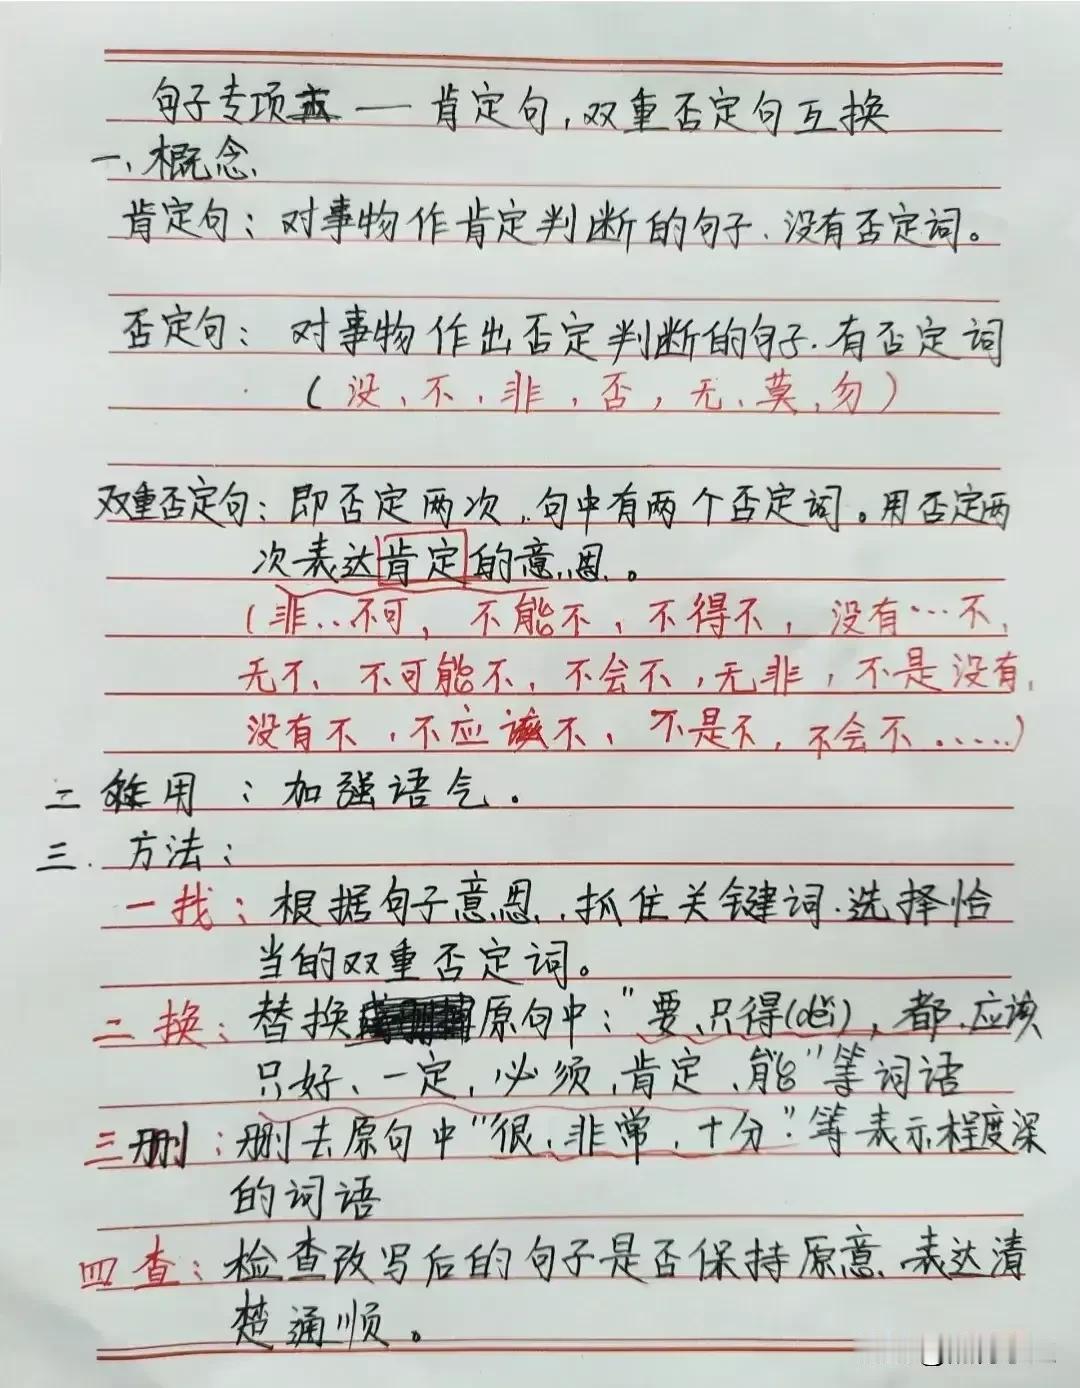 句子专项 — 肯定句，双重否定句互换
一、概念、
肯定句：对事物作肯定判断的句子、没有否定词。
否定句：对事物作出否定判断的句子、有否定词
（没、不、非，否，无、莫，勿）
双重否定句：即否定两次，句中有两个否定词。用否定两
次表达肯定的意思。
（非‥不可，不能不，不得不，没有…不，
无不、不可能不，不会不，无非，不是没有，
没有不，不应该不，不是不，不会不……）
二 作用：加强语气.
三. 方法：
一找：根据句子意思，抓住关键词、选择恰
当的双重否定词。
二换：替换原句中："要、只得(děi)，都、应该
只好、一定，必须，肯定、能"等词语
三删：删去原句中"很、非常，十分"等表示程度深
的词语
四查：检查改写后的句子是否保持原意、表达清
楚通顺。